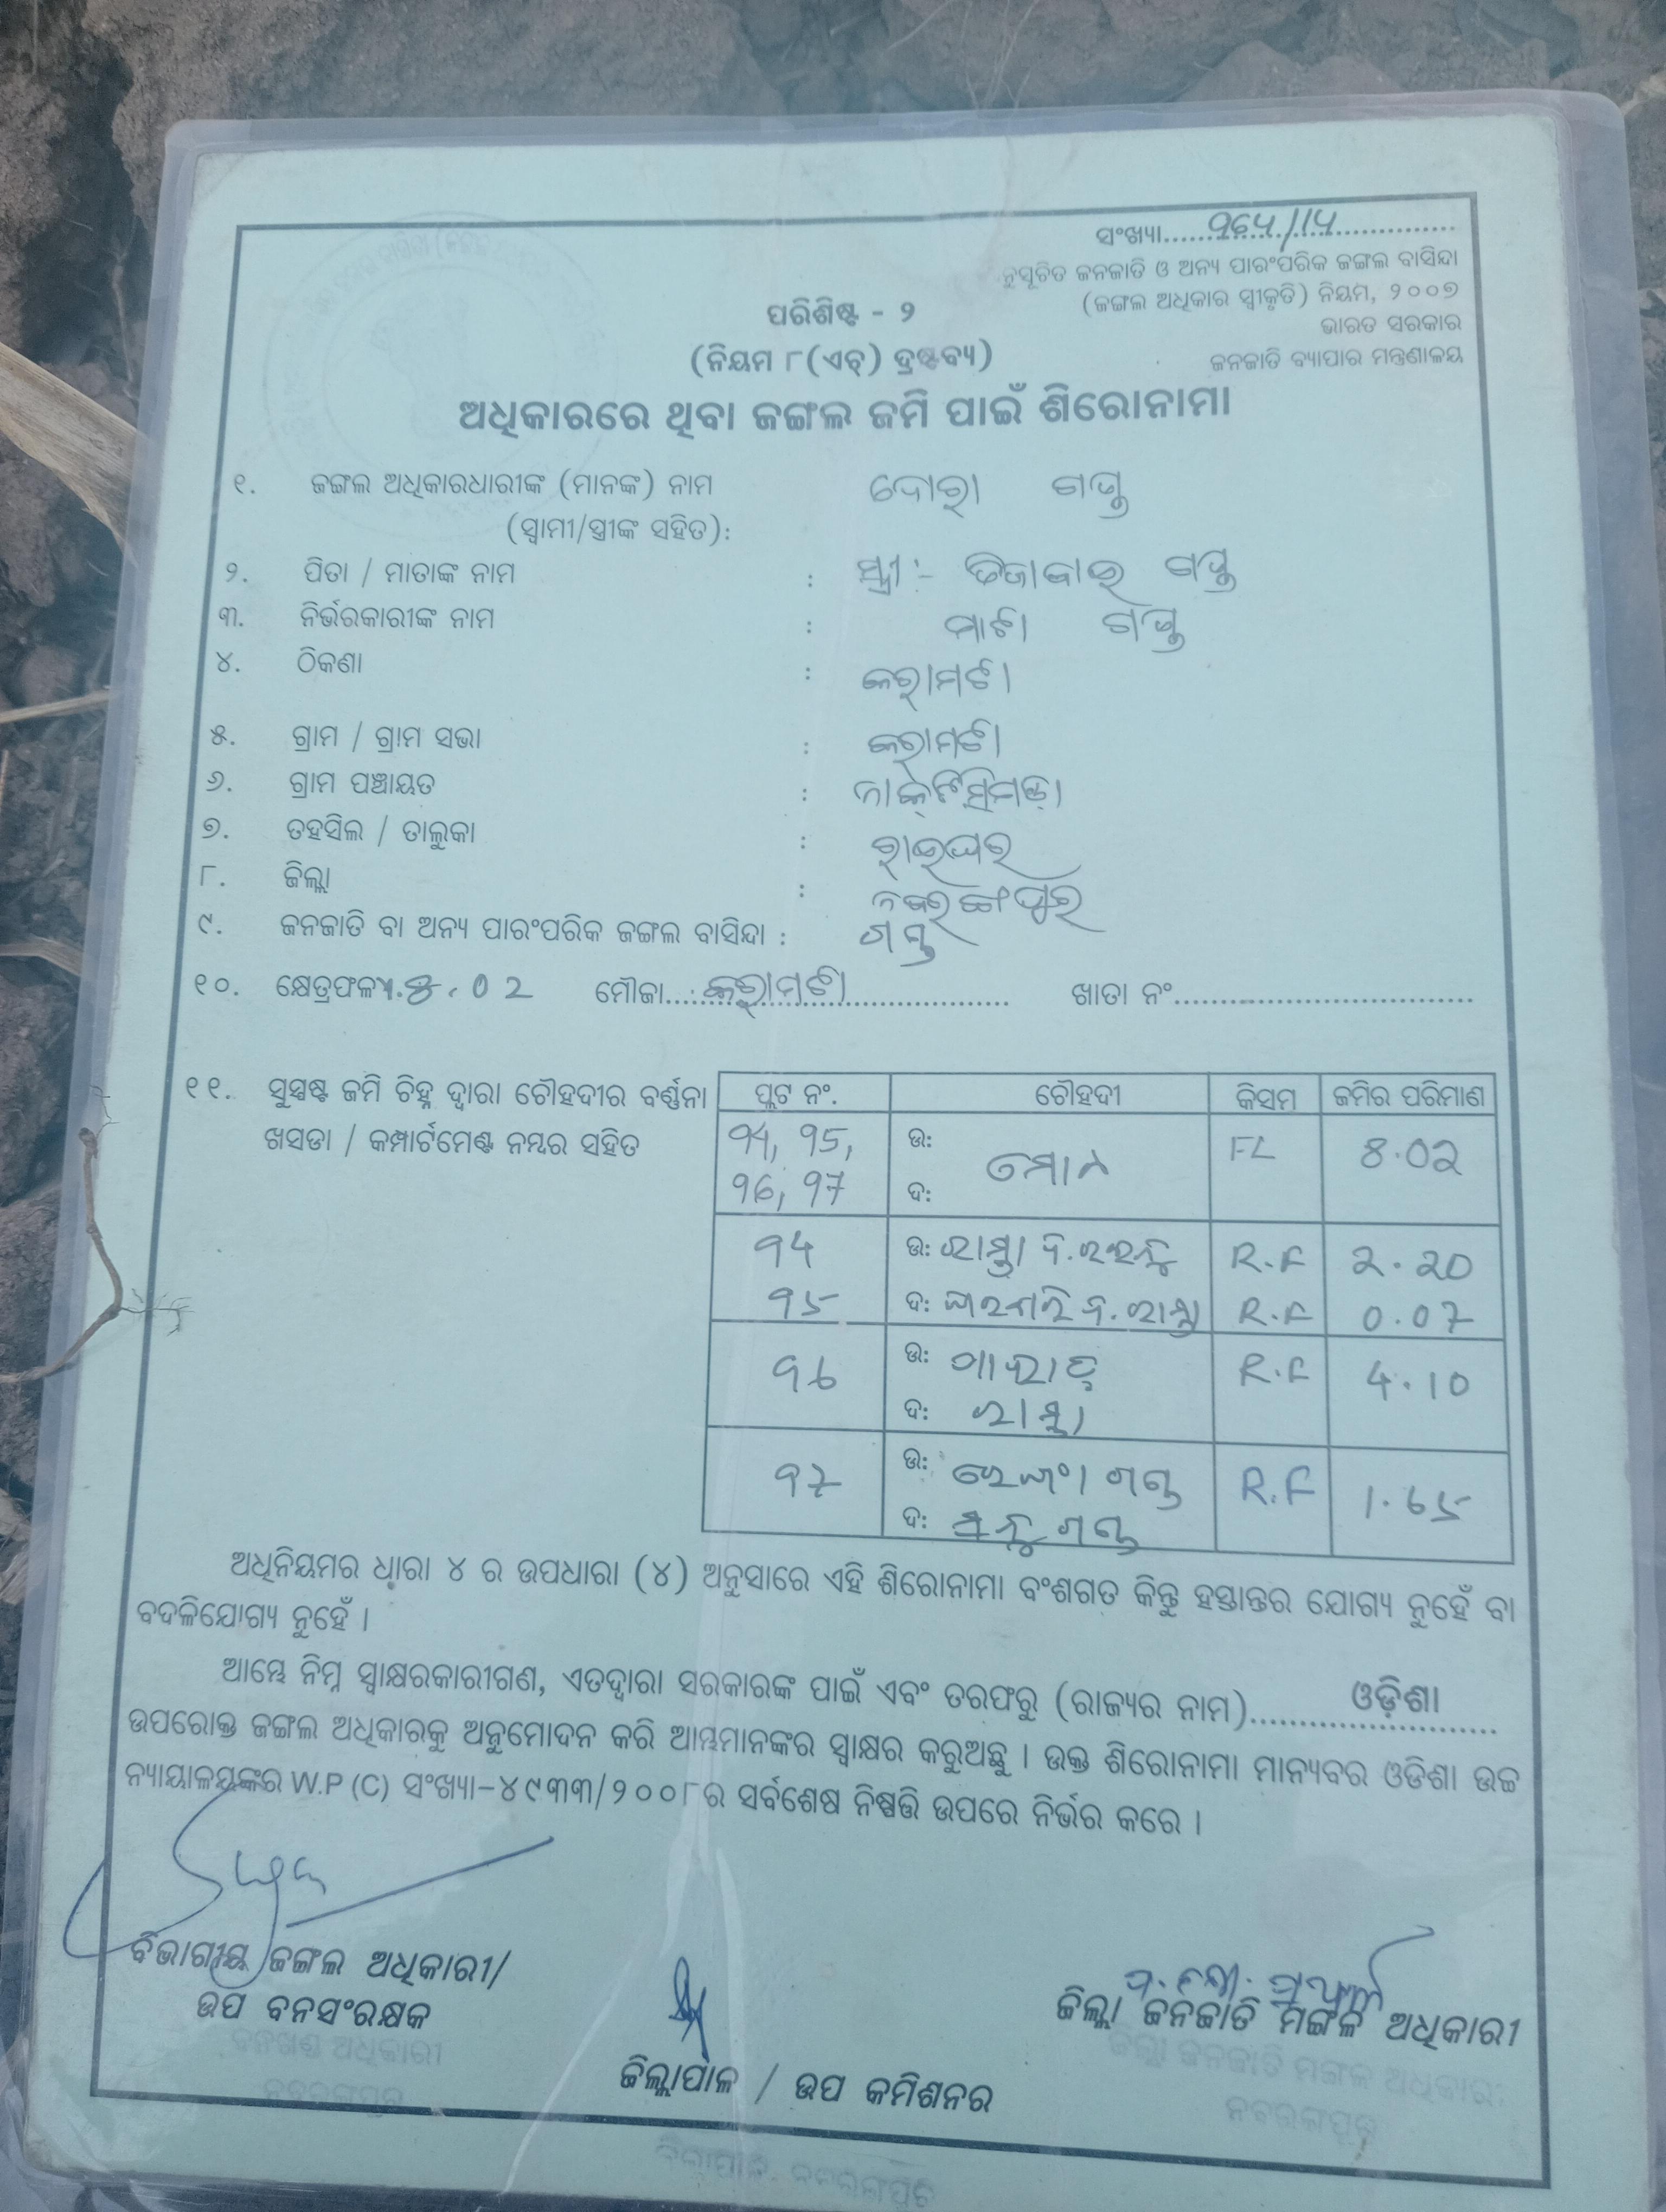 ସଂଖ୍ୟା.....୨୬୪/୧୪.....
ନୁସୂଚିତ ଜନଜାତି ଓ ଅନ୍ୟ ପାରଂପରିକ ଜଙ୍ଗଲ ବାସିନ୍ଦା
(ଜଙ୍ଗଲ ଅଧିକାର ସ୍ୱୀକୃତି) ନିୟମ, ୨୦୦୭
ଭାରତ ସରକାର
ଜନଜାତି ବ୍ୟାପାର ମନ୍ତ୍ରଣାଳୟ
ପରିଶିଷ୍ଟ - ୨
(ନିୟମ ୮(ଏଚ୍) ଦ୍ରଷ୍ଟବ୍ୟ)
ଅଧିକାରରେ ଥିବା ଜଙ୍ଗଲ ଜମି ପାଇଁ ଶିରୋନାମା
୧. ଜଙ୍ଗଲ ଅଧିକାରଧାରୀଙ୍କ (ମାନଙ୍କ) ନାମ ଦୋରା ଗଣ୍ଡ
(ସ୍ୱାମୀ/ସ୍ତ୍ରୀଙ୍କ ସହିତ):
୨. ପିତା / ମାତାଙ୍କ ନାମ : ସ୍ତ୍ରୀ:- ଗଣ୍ଡ
୩. ନିର୍ଭରକାରୀଙ୍କ ନାମ : ଗଣ୍ଡ
୪. ଠିକଣା : କରାମଟା
୫. ଗ୍ରାମ / ଗ୍ରାମ ସଭା : କରାମଟା
୬. ଗ୍ରାମ ପଞ୍ଚାୟତ : ନାକ୍ଟିସିମଡ଼ା
୭. ତହସିଲ / ତାଲୁକା : ରାଇଘର
୮. ଜିଲ୍ଲା : ନବରଙ୍ଗପୁର
୯. ଜନଜାତି ବା ଅନ୍ୟ ପାରଂପରିକ ଜଙ୍ଗଲ ବାସିନ୍ଦା : ଗଣ୍ଡ
୧୦. କ୍ଷେତ୍ରଫଳ 8.02 ମୌଜା.....କରାମଟା..... ଖାତା ନଂ.....
୧୧. ସୁସ୍ପଷ୍ଟ ଜମି ଚିହ୍ନ ଦ୍ୱାରା ଚୌହଦୀର ବର୍ଣ୍ଣନା
ଖସଡା / କମ୍ପାର୍ଟମେଣ୍ଟ ନମ୍ବର ସହିତ
ପ୍ଲଟ ନଂ. ଚୌହଦୀ କିସମ ଜମିର ପରିମାଣ
94, 95, ଉ: FL 8.02
96, 97 ଦ:
94 ଉ: ରାସ୍ତା R.F 2.20
95 ଦ: ରାସ୍ତା R.F 0.07
96 ଉ: R.F 4.10
ଦ: ରାସ୍ତା
97 ଉ: ଗଣ୍ଡ R.F 1.65
ଦ: ଗଣ୍ଡ
ଅଧିନିୟମର ଧାରା ୪ ର ଉପଧାରା (୪) ଅନୁସାରେ ଏହି ଶିରୋନାମା ବଂଶଗତ କିନ୍ତୁ ହସ୍ତାନ୍ତର ଯୋଗ୍ୟ ନୁହେଁ ବା
ବଦଳିଯୋଗ୍ୟ ନୁହେଁ ।
ଆମ୍ଭେ ନିମ୍ନ ସ୍ୱାକ୍ଷରକାରୀଗଣ, ଏତଦ୍ୱାରା ସରକାରଙ୍କ ପାଇଁ ଏବଂ ତରଫରୁ (ରାଜ୍ୟର ନାମ).....ଓଡ଼ିଶା.....
ଉପରୋକ୍ତ ଜଙ୍ଗଲ ଅଧିକାରକୁ ଅନୁମୋଦନ କରି ଆମ୍ଭମାନଙ୍କର ସ୍ୱାକ୍ଷର କରୁଅଛୁ । ଉକ୍ତ ଶିରୋନାମା ମାନ୍ୟବର ଓଡିଶା ଉଚ୍ଚ
ନ୍ୟାୟାଳୟଙ୍କର W.P (C) ସଂଖ୍ୟା-୪୯୩୩/୨୦୦୮ର ସର୍ବଶେଷ ନିଷ୍ପତ୍ତି ଉପରେ ନିର୍ଭର କରେ ।
ବିଭାଗୀୟ ଜଙ୍ଗଲ ଅଧିକାରୀ/
ଉପ ବନସଂରକ୍ଷକ
ବନଖଣ୍ଡ ଅଧିକାରୀ
ନବରଙ୍ଗପୁର
ଜିଲ୍ଲାପାଳ / ଉପ କମିଶନର
ଜିଲ୍ଲାପାଳ, ନବରଙ୍ଗପୁର
ଜିଲ୍ଲା ଜନଜାତି ମଙ୍ଗଳ ଅଧିକାରୀ
ଜିଲ୍ଲା ଜନଜାତି ମଙ୍ଗଳ ଅଧିକାରୀ
ନବରଙ୍ଗପୁର